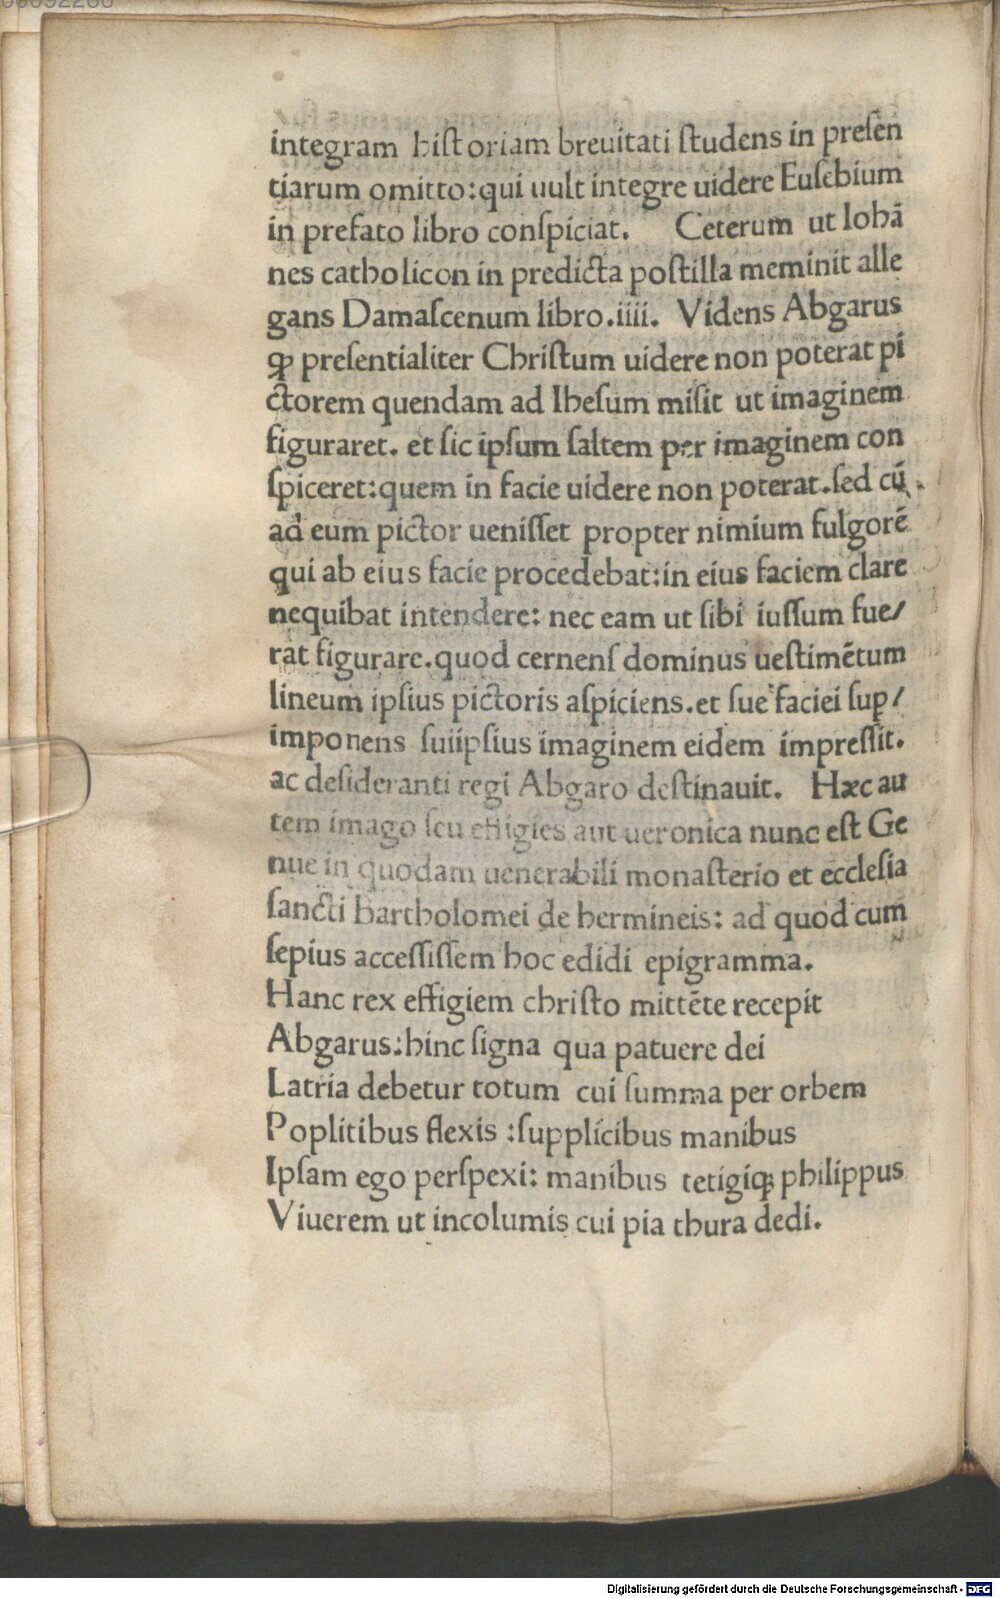 integram historiam breuitati studens in presen
tiarum omitto:qui uult integre uidere Eusebium
in prefato libro conspiciat. Ceterum ut Iohā
nes catholicon in predicta postilla meminit alle
gans Damascenum libro.iiii. Videns Abgarus
ꝙ presentialiter Christum uidere non poterat pi
ctorem quendam ad Ihesum misit ut imaginem
figuraret. et sic ipsum saltem per imaginem con
spiceret:quem in facie uidere non poterat.sed cū
ad eum pictor uenisset propter nimium fulgorē
qui ab eius facie procedebat:in eius faciem clare
nequibat intendere: nec eam ut sibi iussum fue/
rat figurare.quod cernens dominus uestimētum
lineum ipsius pictoris aspiciens.et sue faciei sup/
imponens suiipsius imaginem eidem impressit.
ac desideranti regi Abgaro destinauit. Hæc au
tem imago seu effigies aut ueronica nunc est Ge
nue in quodam uenerabili monasterio et ecclesia
sancti Bartholomei de hermineis: ad quod cum
sepius accessissem hoc edidi epigramma.
Hanc rex effigiem christo mittēte recepit
Abgarus:hinc signa qua patuere dei
Latria debetur totum cui summa per orbem
Poplitibus flexis :supplicibus manibus
Ipsam ego perspexi: manibus tetigiqꝫ philippus
Viuerem ut incolumis cui pia thura dedi.
Digitalisierung gefördert durch die Deutsche Forschungsgemeinschaft - DFG